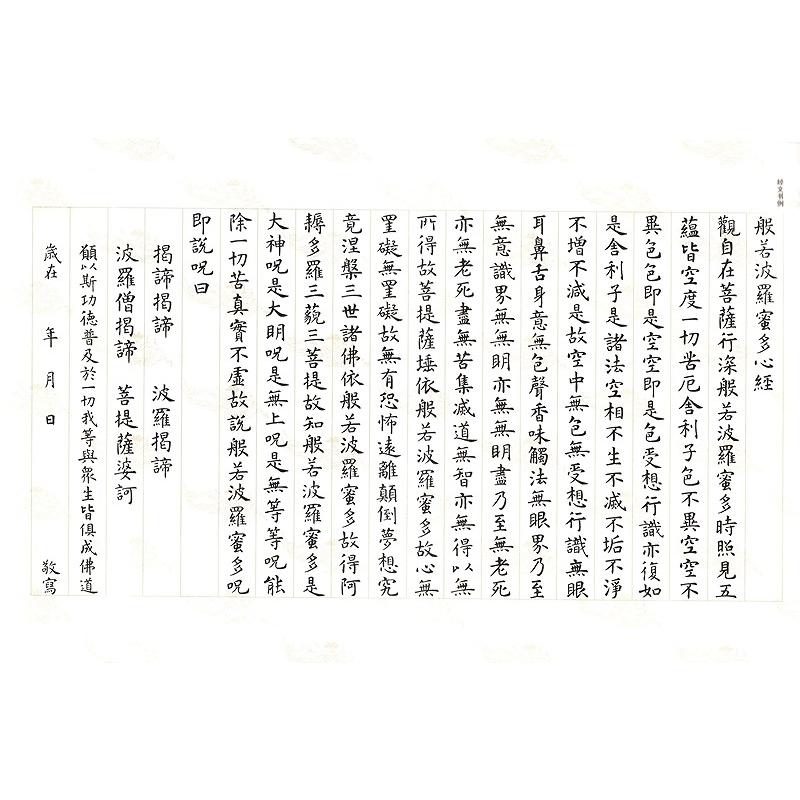 经文书例
般若波羅蜜多心經
觀自在菩薩行深般若波羅蜜多時照見五
蘊皆空度一切苦厄舍利子色不異空空不
異色色即是空空即是色受想行識亦復如
是舍利子是諸法空相不生不滅不垢不淨
不增不減是故空中無色無受想行識無眼
耳鼻舌身意無色聲香味觸法無眼界乃至
無意識界無無明亦無無明盡乃至無老死
亦無老死盡無苦集滅道無智亦無得以無
所得故菩提薩埵依般若波羅蜜多故心無
罣礙無罣礙故無有恐怖遠離顛倒夢想究
竟涅槃三世諸佛依般若波羅蜜多故得阿
耨多羅三藐三菩提故知般若波羅蜜多是
大神呪是大明呪是無上呪是無等等呪能
除一切苦真實不虛故說般若波羅蜜多呪
即說呪曰
揭諦揭諦 波羅揭諦
波羅僧揭諦 菩提薩婆訶
願以斯功德普及於一切我等與眾生皆俱成佛道
歲在 年 月 日 敬寫